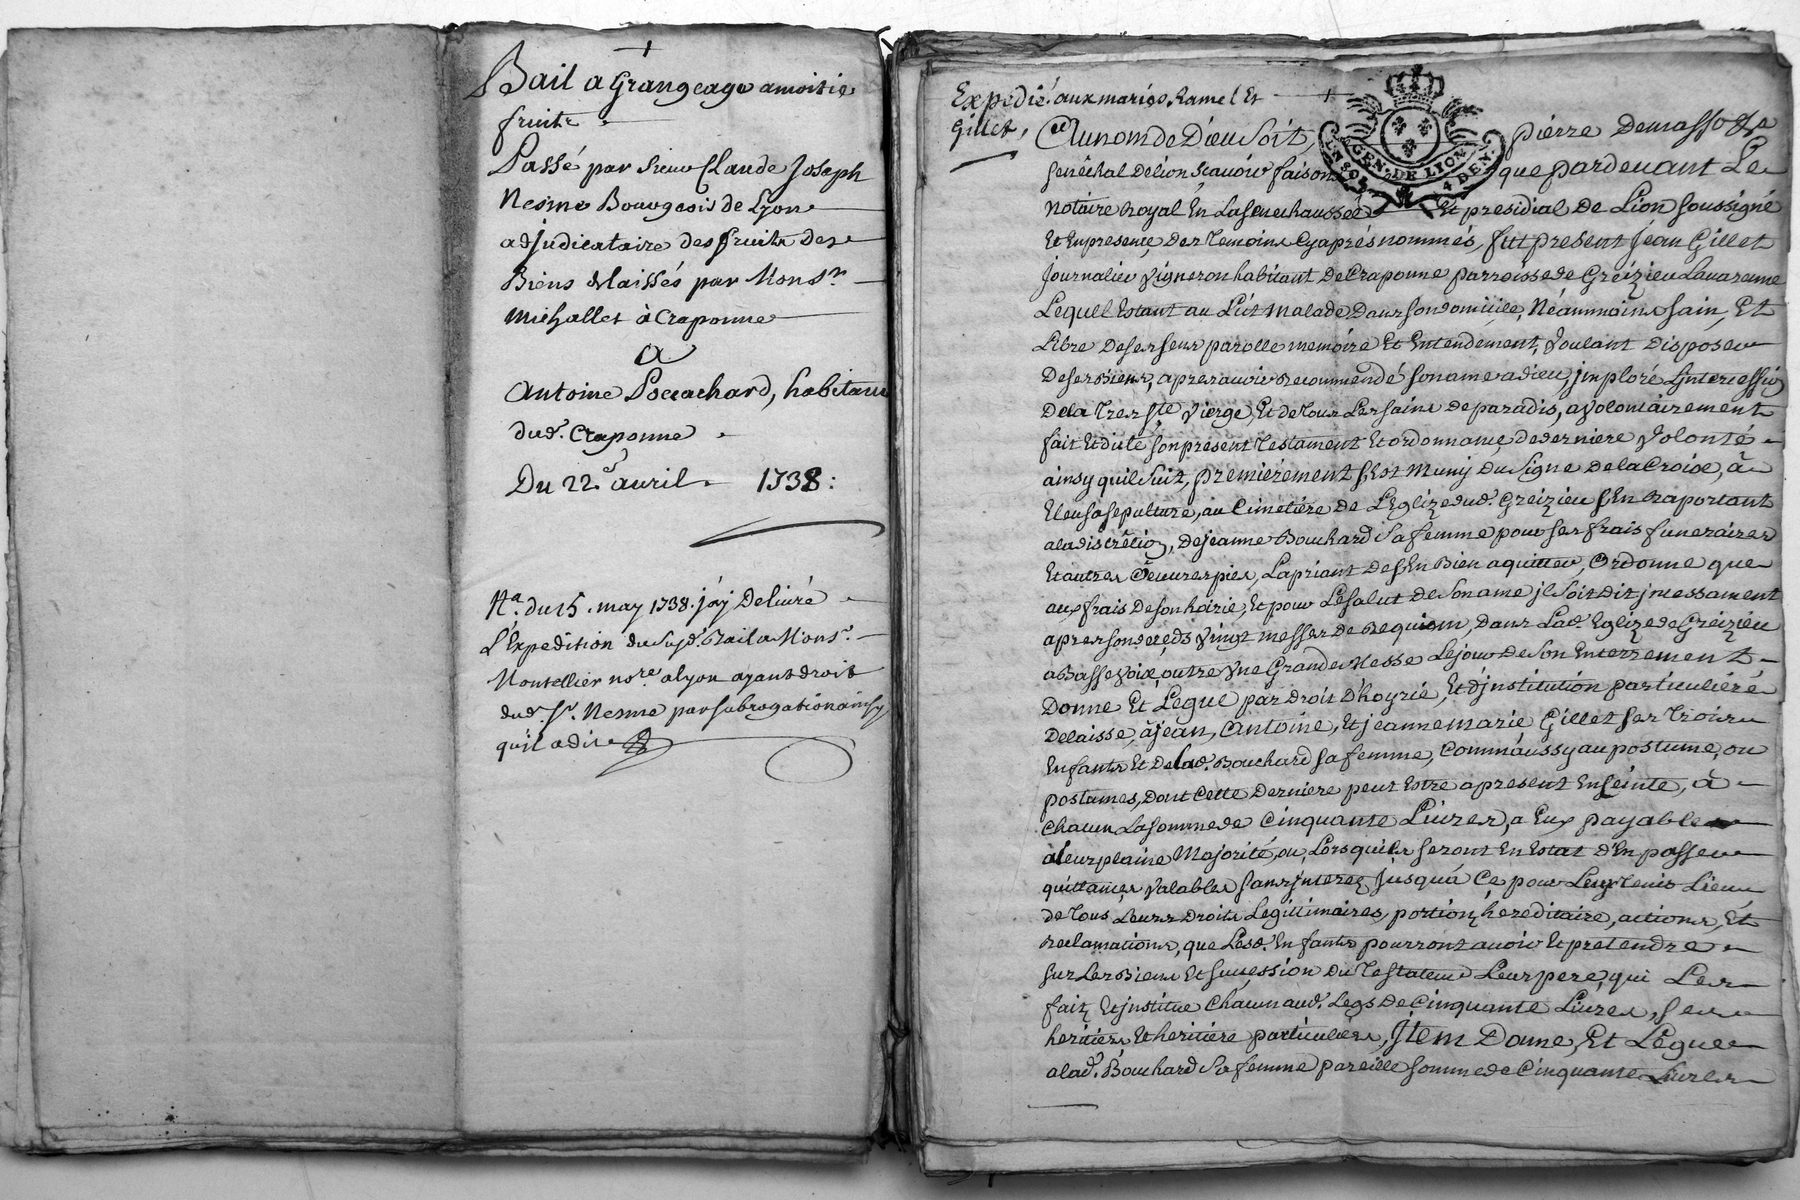 Bail a Grangeage amoitie
fruits
Passé par sieur Claude Joseph
Nesme Bourgeois de Lyon
adjudicataire des fruits des
Biens delaissés par Monsr.
michallet à Craponne
a
Antoine Poccachard, habitant
dud. Craponne
Du 22e avril 1738:
Na. du 15. may 1738. j'ay Delivré
L'Expedition du susd. Bail a Monsr.
Montellier nore. a lyon ayant droit
dud. sr. Nesme par subrogation ainsy
qu'il a dit
Expedié aux mariés Ramel Et
Gillet,
Au nom de Dieu soit, pierre Demasso
GEN. DE LION 4 DEN.
senéchal De lion scavoir faisons que pardevant Le
notaire Royal En La senechaussée Et presidial De Lion soussigné
Et En presence des Temoins Cy aprés nommés, fut present Jean Gillet
journalier vigneron habitant De Craponne parroisse de Greizieu Lavarenne
Lequel Estant au Lit malade Dans son domicille, Néammoins sain, Et
Libre De ses sens parolle memoire Et Entendement, voulant Disposer
De ses Biens, apres avoir Recommendé son ame a dieu, jmploré L'jntercession
De la Tres ste. vierge, Et de Tous Les saints de paradis, a volontairement
fait Et dicté son present Testament Et ordonnance de derniere volonté
ainsy quil suit, premierement s'Est Muny Du signe De la Croix, à
Eleu sa sepulture, au Cimetiére De L'Eglize dud. Greizieu s'En Raportant
a la discrétion, De jeanne Bouchard sa femme pour ses frais funeraires
Et autres Oeuvres pies, La priant De s'En Bien aquitter, Ordonne que
aux frais De son hoirie, Et pour Le salut De son ame jl soit Dit jncessament
apres son deceds vingt messes de Requiem, dans Lad. Eglize de Greizieu
a Basse voix, outre vne Grande Messe Le jour De son Enterrement
Donne Et Legue par Droit D'hoyrie, Et D'jnstitution particuliere
Delaisse, à jean, Antoine, Et jeanne marie Gillet ses Trois
Enfants Et De lad. Bouchard sa femme, Comm'aussy au postume, ou
postumes, Dont Cette Derniere peut Estre a present Enseinte, à
Chacun La somme de Cinquante Livres, a Eux payable
a leur plaine Majorité, ou Lors quils seront En Estat D'En passer
quittances valables sans jnterez jusqu'a Ce pour Leur Tenir Lieu
de Tous Leurs Droits Legittimaires, portion hereditaire, actions, Et
Reclamations, que Lesd. Enfants pourront avoir Et pretendre
sur Les Biens Et succession Du Testateur Leur pere, qui Les
fait Et jnstitue Chacun aud. Legs De Cinquante Livres, ses
heritiers Et heritiere particuliers, Jtem Donne, Et Légue
a lad. Bouchard sa femme pareille somme de Cinquante Livres